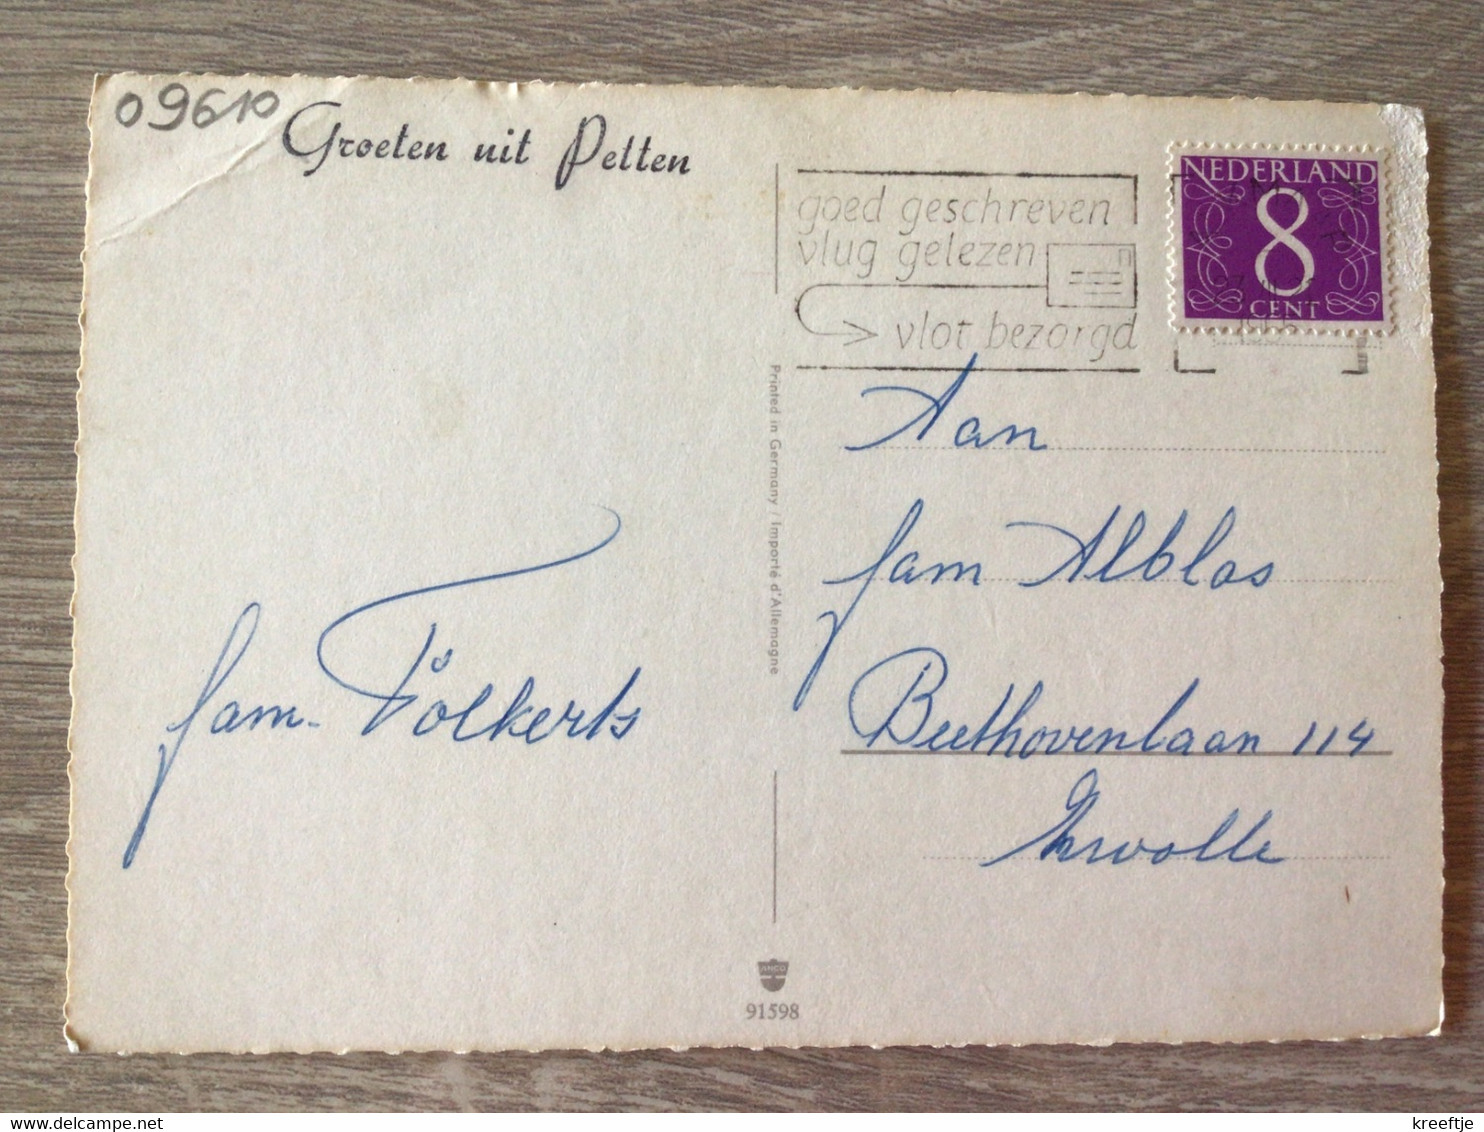 09610
Groeten uit Petten
goed geschreven
vlug gelezen
vlot bezorgd
NEDERLAND
8
CENT
Printed in Germany / Importé d'Allemagne
Aan
fam Alblas
Beethovenlaan 114
Zwolle
fam. Folkerts
ANCO
91598
kreeftje